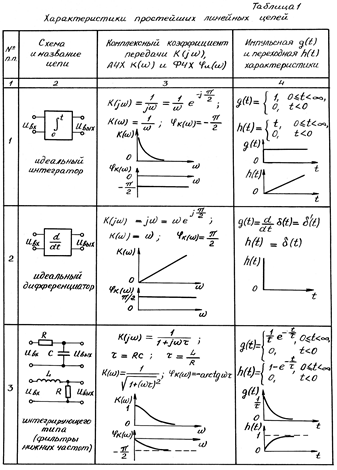 Таблица 1
Характеристики простейших линейных цепей
№ п.п.
Схема и название цепи
Комплексный коэффициент передачи K(jω), АЧХ K(ω) и ФЧХ φк(ω)
Импульсная g(t) и переходная h(t) характеристики
1 2 3 4
1
∫₀ᵗ
Uвх Uвых
идеальный интегратор
K(jω) = 1/jω = 1/ω e^(-jπ/2) ;
K(ω) = 1/ω ; φк(ω) = -π/2
K(ω)
ω
φк(ω)
ω
-π/2
g(t) = { 1, 0≤t<∞,
0, t<0
h(t) = { t, 0≤t<∞,
0, t<0
g(t)
t
h(t)
t
2
d/dt
Uвх Uвых
идеальный дифференциатор
K(jω) = jω = ω e^(jπ/2) ;
K(ω) = ω ; φк(ω) = π/2
K(ω)
ω
φк(ω)
π/2
ω
g(t) = d/dt δ(t) = δ'(t)
h(t) = δ(t)
h(t)
t
3
R
Uвх C Uвых
L
Uвх R Uвых
интегрирующего типа
(фильтры нижних частот)
K(jω) = 1/(1+jωτ) ;
τ = RC ; τ = L/R
K(ω) = 1/√(1+(ωτ)²) ; φк(ω) = -arctgωτ
K(ω)
1
ω
φк(ω)
ω
-π/2
g(t) = { 1/τ e^(-t/τ), 0≤t<∞
0, t<0
h(t) = { 1-e^(-t/τ), 0≤t<∞
0, t<0
g(t)
1/τ
t
h(t)
1
t